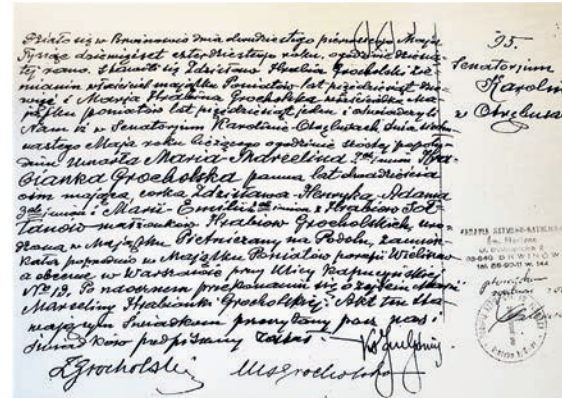 Działo się w Brwinowie dnia dwudziestego pierwszego Maja
Tysiąc dziewięćset czterdziestego roku, o godzinie dziesią-
tej rano. Stawili się Zdzisław Hrabia Grocholski Zie-
mianin właściciel majątku Poniatów lat pięćdziesiąt dzie-
więć i Marja Hrabina Grocholska właścicielka Ma-
jątku Poniatów lat pięćdziesiąt jeden i oświadczyli
Nam iż w Senatorjum Karolin-Otrębusach, dnia
nastego Maja roku bieżącego o godzinie szóstej popołu-
dniu umarła Maria-Marcelina 2ga imion Hra-
bianka Grocholska panna lat dwadzieścia
osim mająca, córka Zdzisława Henryka Adama
imion i Marii Emilii imion z Hrabiów Soł-
tanów małżonków Hrabiów Grocholskich, uro-
dzona w Majątku Pietniczany na Podolu, zamiesz-
kała poprzednio w Majątku Poniatów parafji Wieliszew
a obecnie w Warszawie przy Ulicy Kapucyńskiej
№ 19. Po naocznem przekonaniu się o zejściu Marii
Marceliny Hrabianki Grocholskiej. Akt ten sta-
wającym świadkom przeczytany przez nas i
świadków podpisany został.
ZGrocholski MGrocholska
95.
Senatorjum
Karolin
z Otrębusa
BRWINÓW